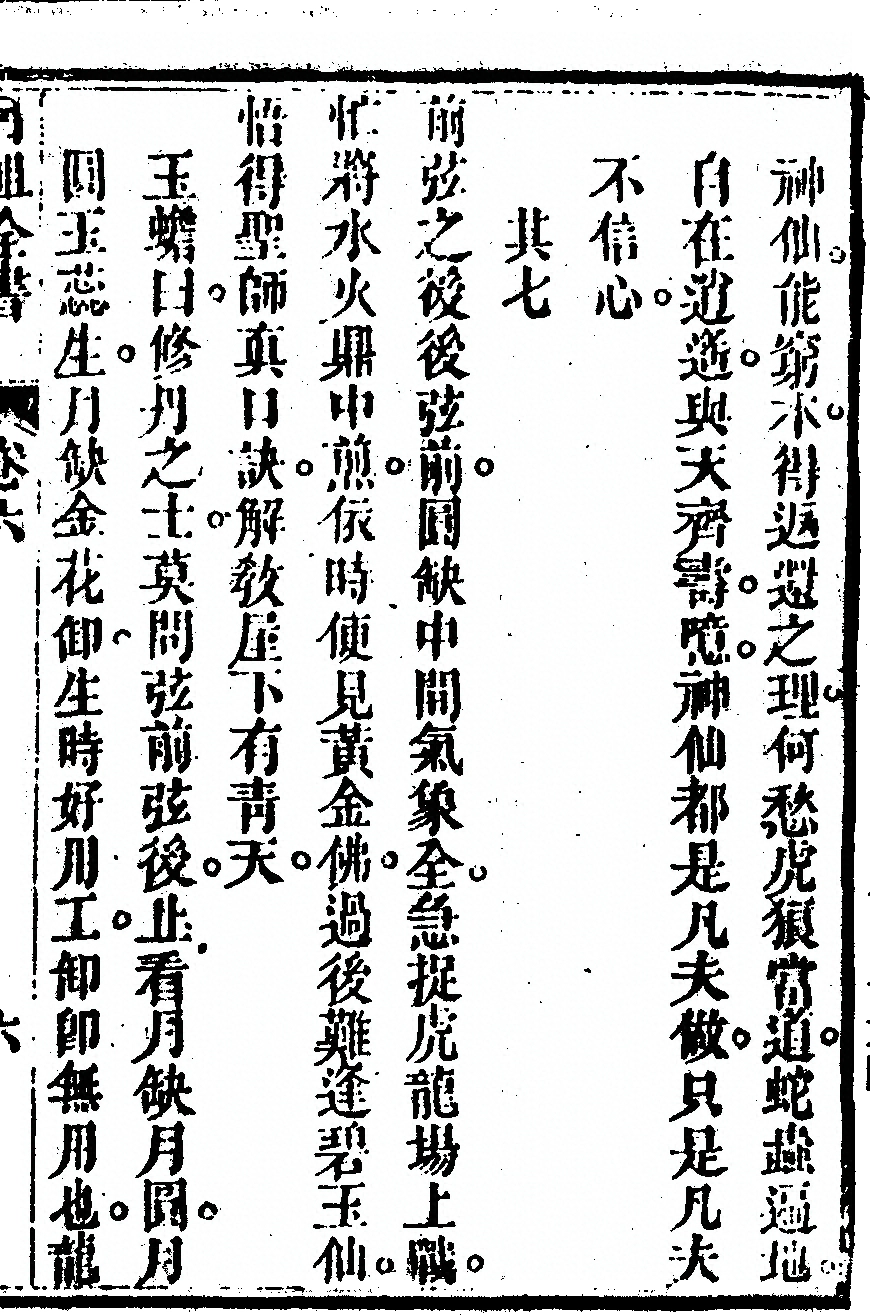 神仙能窮不得返還之理何愁虎狼當道蛇蝎逼地
自在逍遙與天齊壽噫神仙都是凡夫做只是凡夫
不信心
其七
前弦之後後弦前圓缺中間氣象全急捉虎龍場上戰
忙將水火鼎中煎依時便見黃金佛過後難逢碧玉仙
悟得聖師真口訣解敎屋下有靑天
玉蟾曰修丹之士莫問弦前弦後止看月缺月圓月
圓玉蕊生月缺金花卸生時好用工卸卽無用也龍
呂祖全書　卷六　六